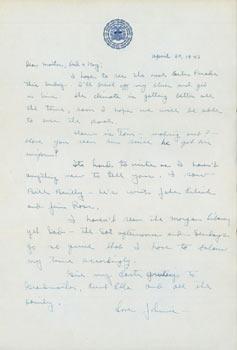 April 20, 1943
Dear Mother, Dad & Meg,
I hope to see the next Easter Parade
this Sunday. I'll put on my blues and get
in line. The climate is getting better all
the time, soon I hope we will be able
to use the pool.
How is Tom - making out?
Have you seen him since he got his
uniform?
It's hard to write as I haven't
anything new to tell you. I saw
Bill Reilly - he's with John
and Jim Ross.
I haven't seen the Morgan Library
yet Dad - the Sat afternoons and Sundays
go so quick that I have to
my time accordingly.
Give my Easter greetings to
Grandmother, Aunt Ella and all the
family.
Love Johnnie